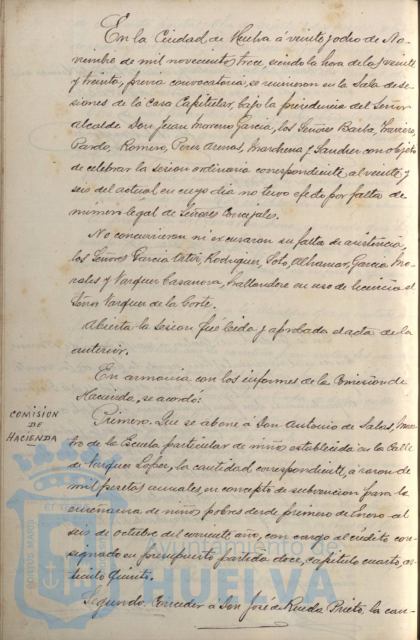 En la Ciudad de Huelva á veinte y ocho de No-
viembre de mil novecientos trece, siendo la hora de las veinte
y treinta, previa convocatoria, se reunieron en la Sala de se-
siones de la Casa Capitular, bajo la presidencia del Señor
alcalde Don Juan Moreno García, los Señores Barba, Traviero,
Pardo, Romero, Perez Arenas, Marchena y Sandier con objeto
de celebrar la sesion ordinaria correspondiente al veinte y
seis del actual en cuyo dia no tuvo efecto por falta de
número legal de Señores Concejales.
No concurrieron ni excusaron su falta de asistencia,
los Señores Garcia Ortiz, Rodriguez, Soto, Alhamar, Garcia Mo-
rales y Vazquez Casanova, hallandose en uso de licencia el
Señor Vazquez de la Corte.
Abierta la sesion fué leida y aprobada el acta de la
anterior.
En armonia con los informes de la Comision de
Hacienda, se acordo:
COMISION
DE
HACIENDA
Primero. Que se abone á Don Antonio de Salas, maes-
tro de la Escuela particular de niños establecida en la Calle
de Vazquez Lopez, la cantidad correspondiente, á razon de
mil pesetas anuales, en concepto de subvencion para la
enseñanza de niños pobres desde primero de Enero al
seis de octubre del corriente año, con cargo al crédito con-
signado en presupuesto partida doce, capitulo cuarto, ar-
ticulo quinto.
Segundo. Conceder á Don José de Rueda Prieto, la can-
PORTUS MARIS
Ayuntamiento de
HUELVA